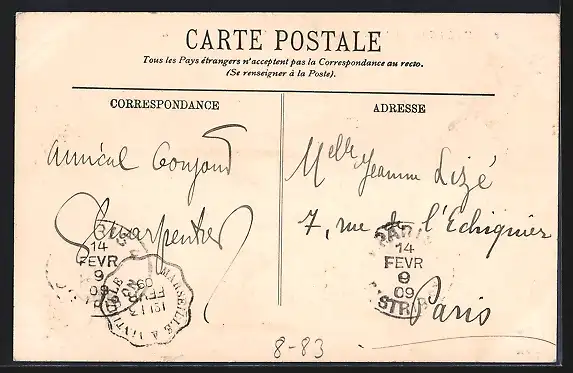 CARTE POSTALE
Tous les Pays étrangers n'acceptent pas la Correspondance au recto.
(Se renseigner à la Poste).
CORRESPONDANCE
ADRESSE
Amical bonjour
Charpentier
Melle Jeanne Lizé
7, rue de l'Echiquier
Paris
14
FEVR
9
09
MARSEILLE A VINTIMILLE
PARIS
14
FEVR
9
09
DISTRIB
8-83